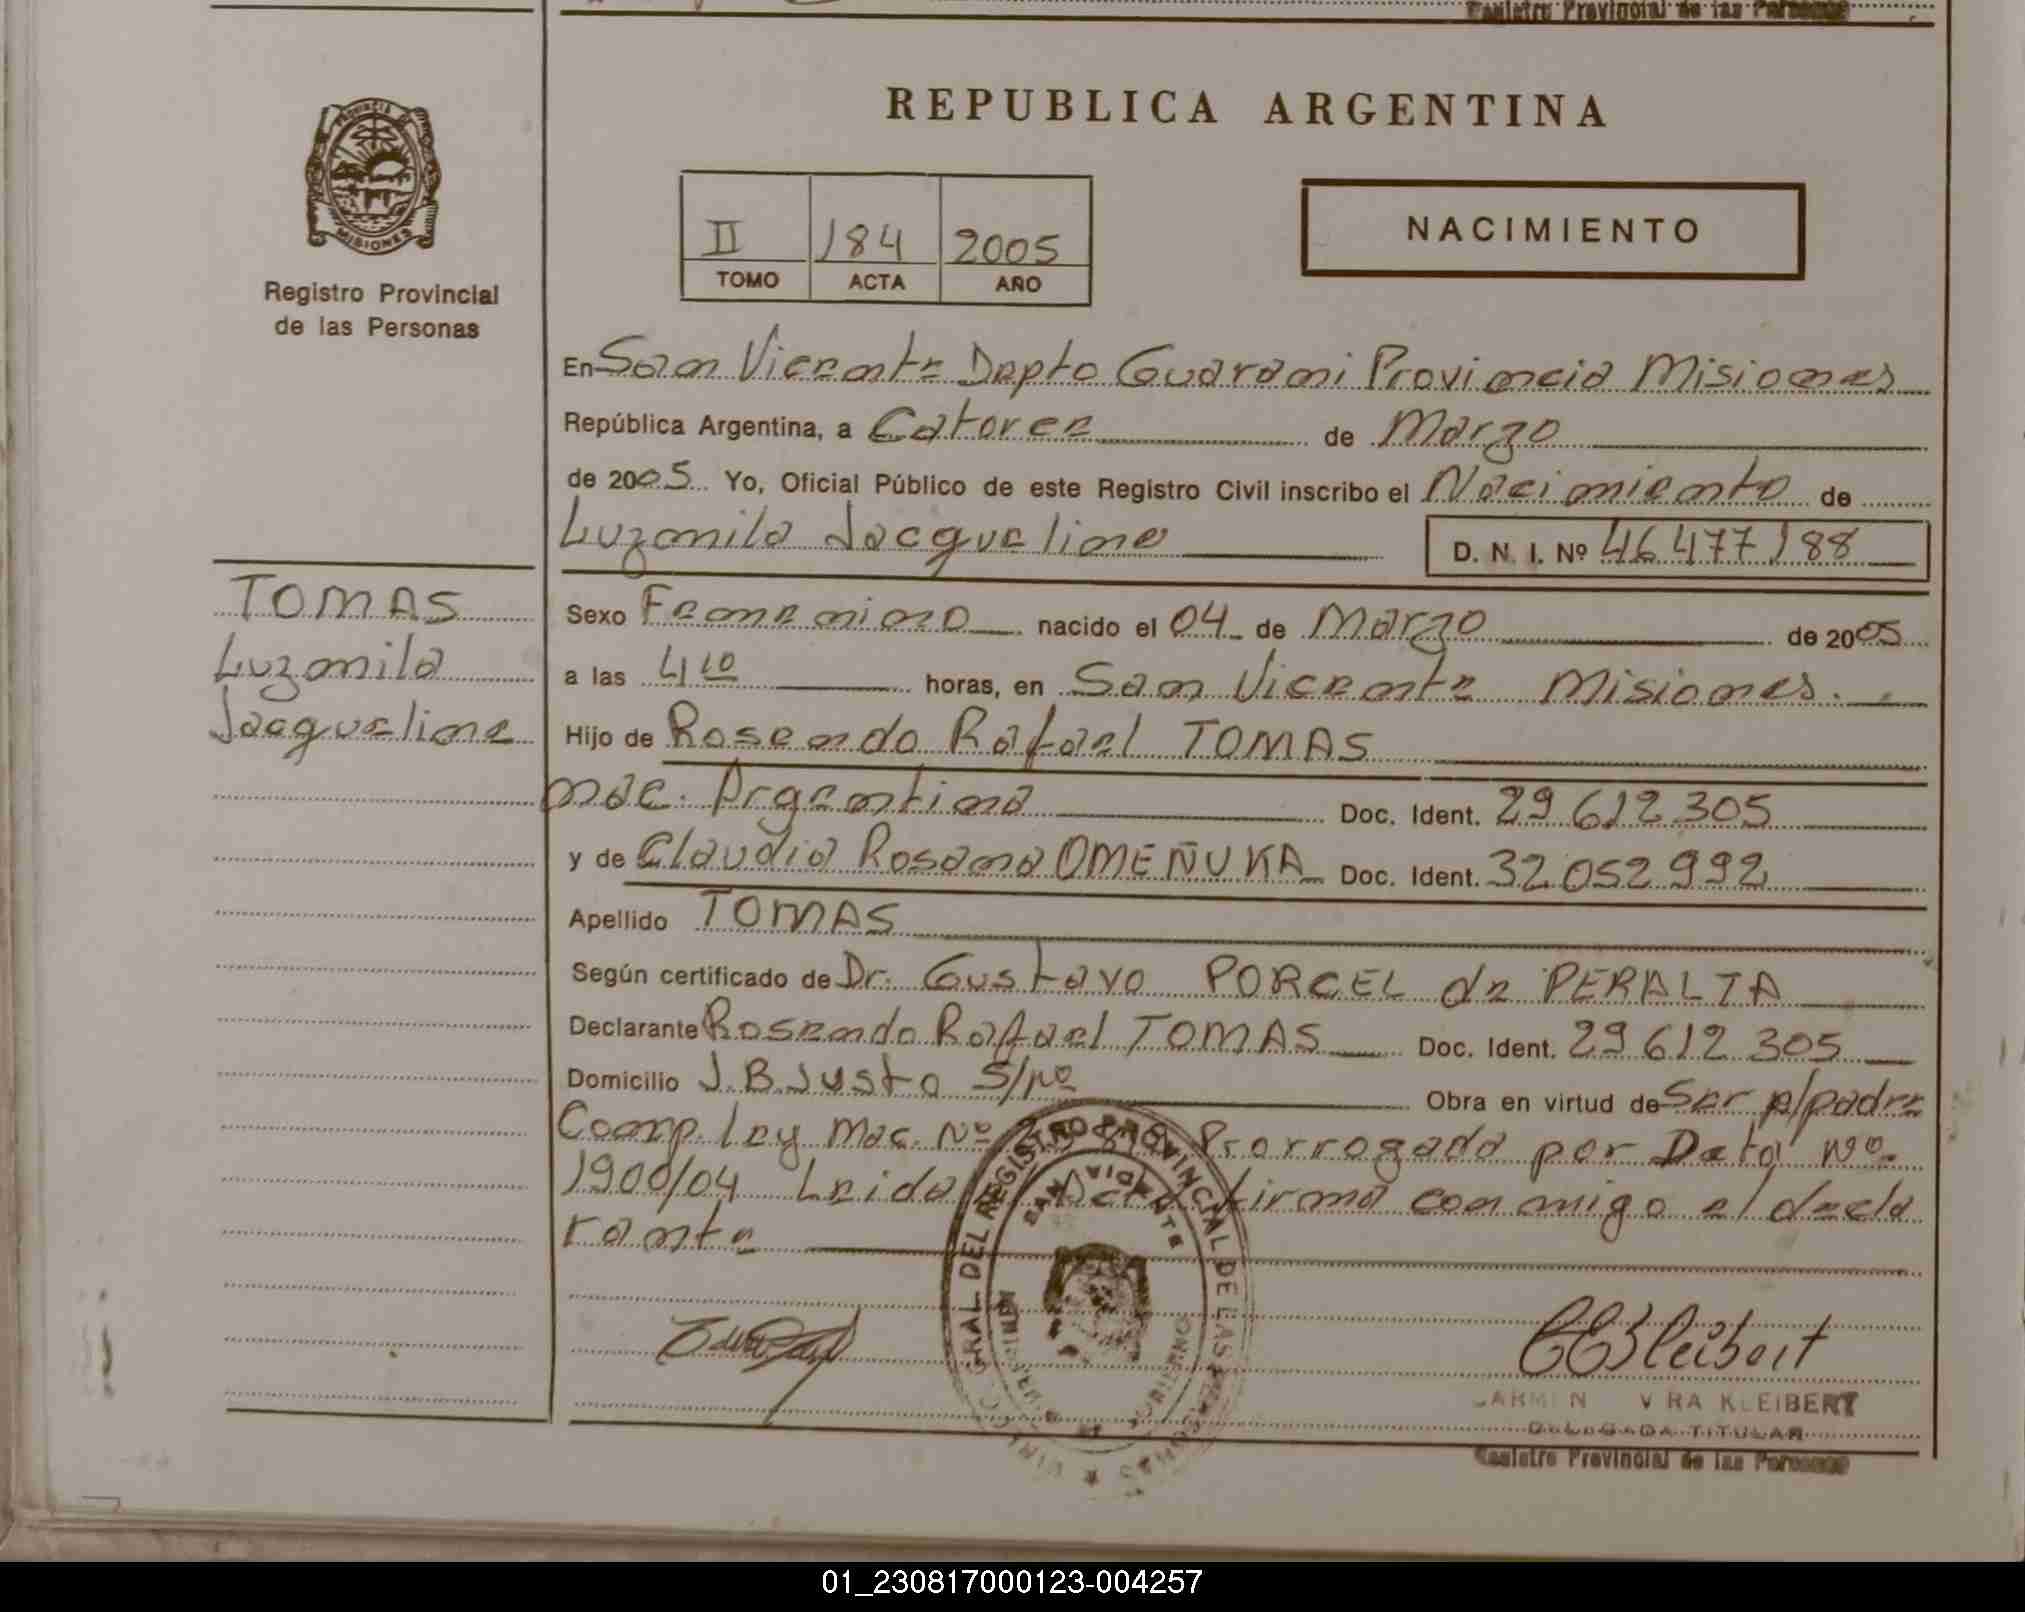 Registro Provincial de las Personas
PROVINCIA DE
MISIONES
Registro Provincial
de las Personas
REPUBLICA ARGENTINA
II 184 2005
TOMO ACTA AÑO
NACIMIENTO
En San Vicente Depto Guarani Provincia Misiones
República Argentina, a Catorce de Marzo
de 2005 Yo, Oficial Público de este Registro Civil inscribo el Nacimiento de
Luzmila Jacqueline D. N. I. Nº 46.477.188
TOMAS
Luzmila
Jacqueline
Sexo Femenino nacido el 04 de Marzo de 2005
a las 4 10 horas, en San Vicente Misiones.
Hijo de Rosendo Rafael TOMAS
nac. Argentina Doc. Ident. 29.612.305
y de Claudia Rosana OMEÑUKA Doc. Ident. 32.052.992
Apellido TOMAS
Según certificado de Dr. Gustavo PORCEL de PERALTA
Declarante Rosendo Rafael TOMAS Doc. Ident. 29.612.305
Domicilio J.B.Justo S/Nº Obra en virtud de Ser p/padre
Comp. Ley Nac. Nº Prorrogada por Dcto Nº
1900/04 Leida Acta firma conmigo el decla
rante
REGISTRO PROVINCIAL DE LAS PERSONAS
SAN VICENTE
KLEIBERT
DELEGADA TITULAR
Registro Provincial de las Personas
01_230817000123-004257